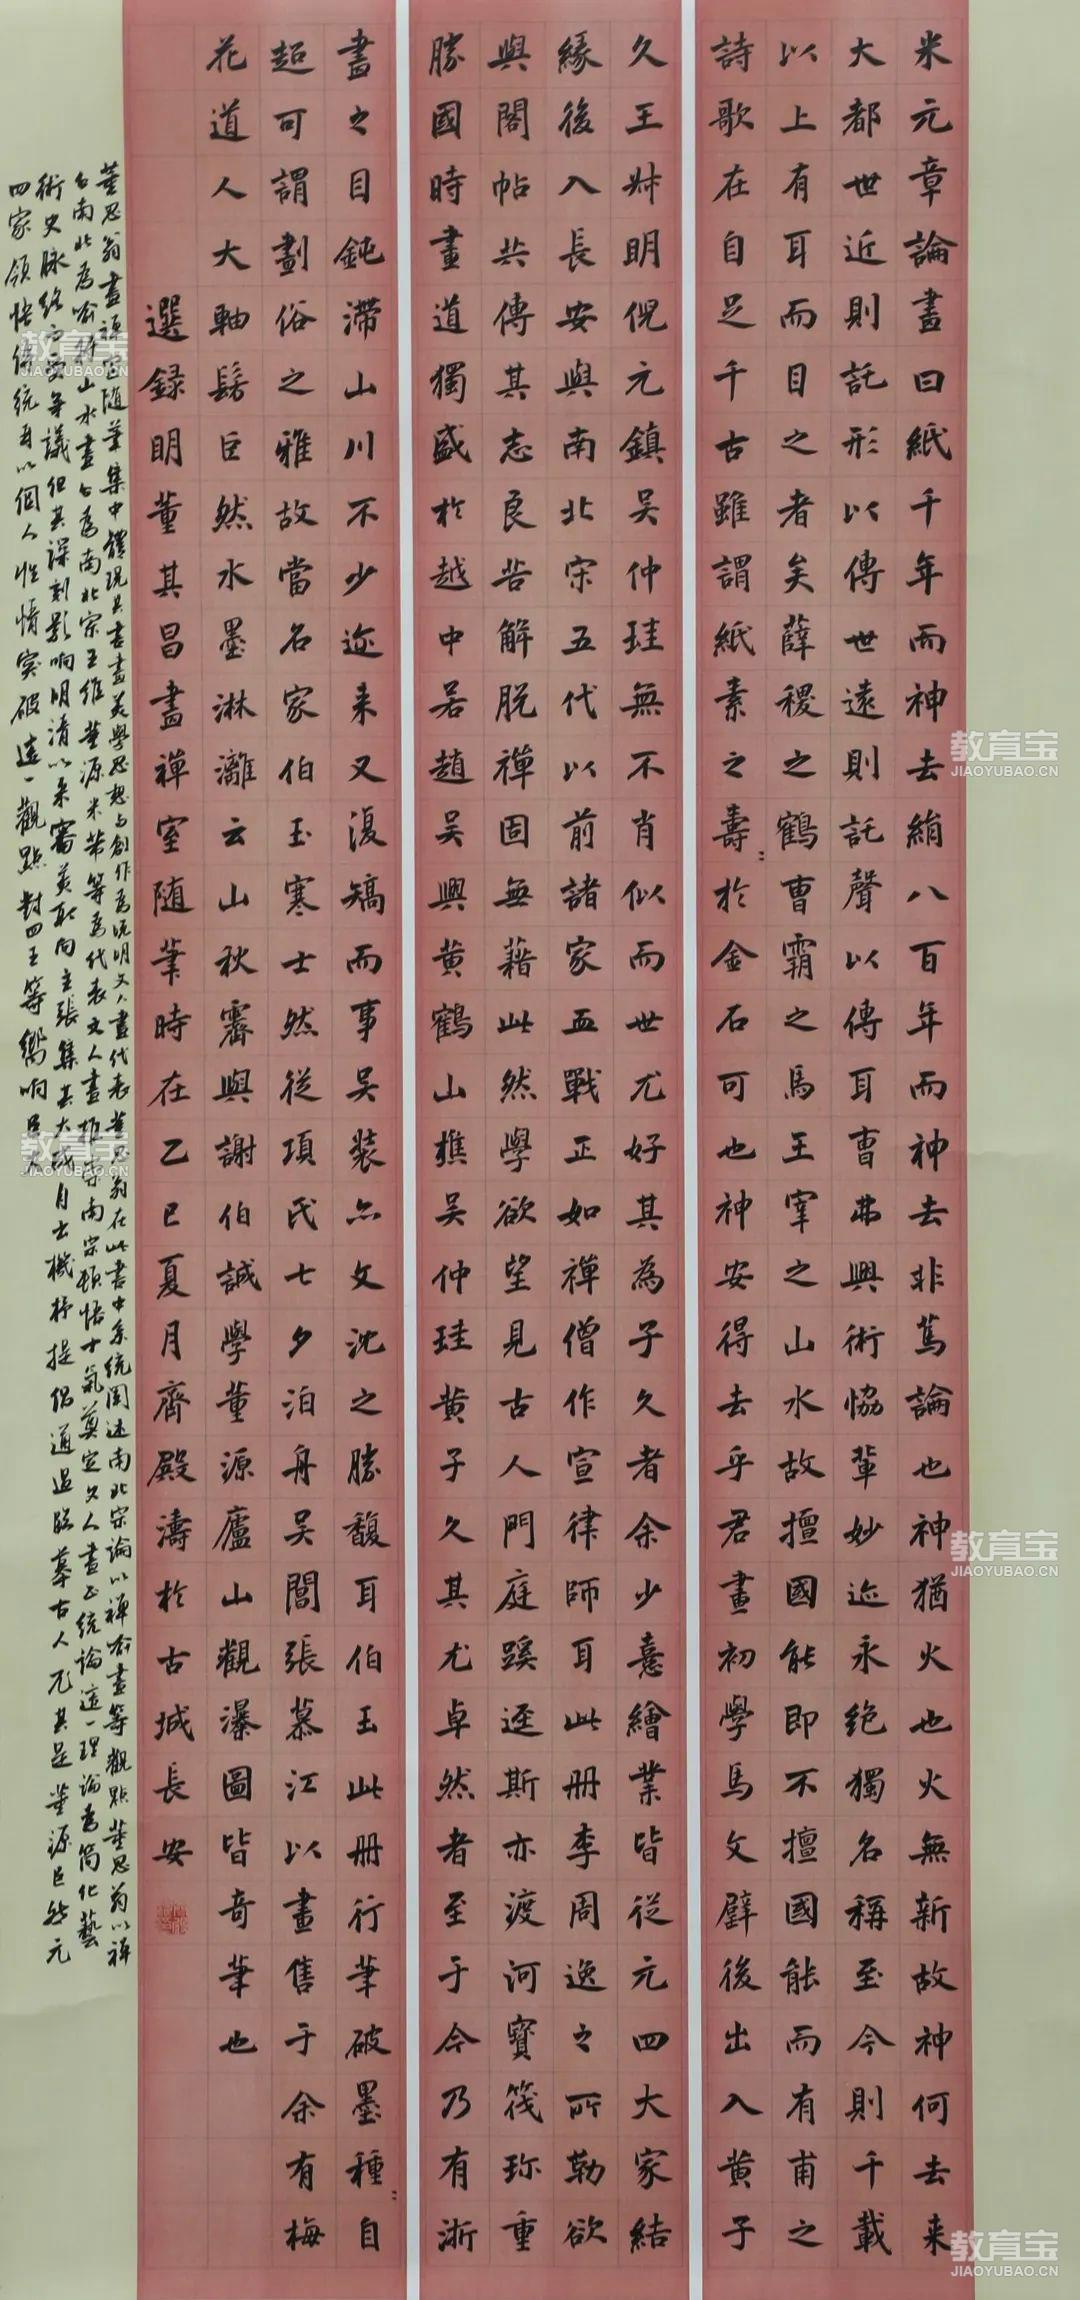 米元章論畫曰紙千年而神去絹八百年而神去非篤論也神猶火也火無新故神何去来
大都世近則託形以傳世遠則託聲以傳耳曹弗興術恊輩妙迹永绝獨名稱至今則千載
以上有耳而目之者矣薛稷之鶴曹霸之馬王宰之山水故擅國能即不擅國能而有甫之
詩歌在自足千古雖謂紙素之壽於金石可也神安得去乎君畫初學馬文璧後出入黄子
久王叔明倪元鎮吴仲珪無不肖似而世尤好其為子久者余少憙繪業皆從元四大家結
緣後入長安與南北宋五代以前諸家血戰正如禪僧作宣律師耳此册李周逸之所勒欲
與閣帖共傳其志良苦解脱禪固無藉此然學欲望見古人門庭蹊逕斯亦渡河寳筏珎重
勝國時畫道獨盛於越中若趙吴興黄鶴山樵吴仲珪黄子久其尤卓然者至于今乃有浙
畫之目鈍滯山川不少迩来又復矯而事吴装亦文沈之勝馥耳伯玉此册行筆破墨種自
超可謂劃俗之雅故當名家伯玉寒士然從項氏七夕泊舟吴閶張慕江以畫售于余有梅
花道人大軸髣巨然水墨淋漓云山秋霽與謝伯誠學董源廬山觀瀑圖皆奇筆也
選録明董其昌畫禪室随筆時在乙巳夏月齊殿濤於古城長安
董思翁畫禪室随筆集中體現其書畫美學思想与創作為晚明文人畫代表董思翁在此書中系統闡述南北宗論以禅喻畫等觀點董思翁以禅
四家領悟傳統再以個人性情突破這一觀點對四王等影响巨大
教育宝
JIAOYUBAO.CN
教育宝
JIAOYUBAO.CN
教育宝
JIAOYUBAO.CN
教育宝
JIAOYUBAO.CN
教育宝
JIAOYUBAO.CN